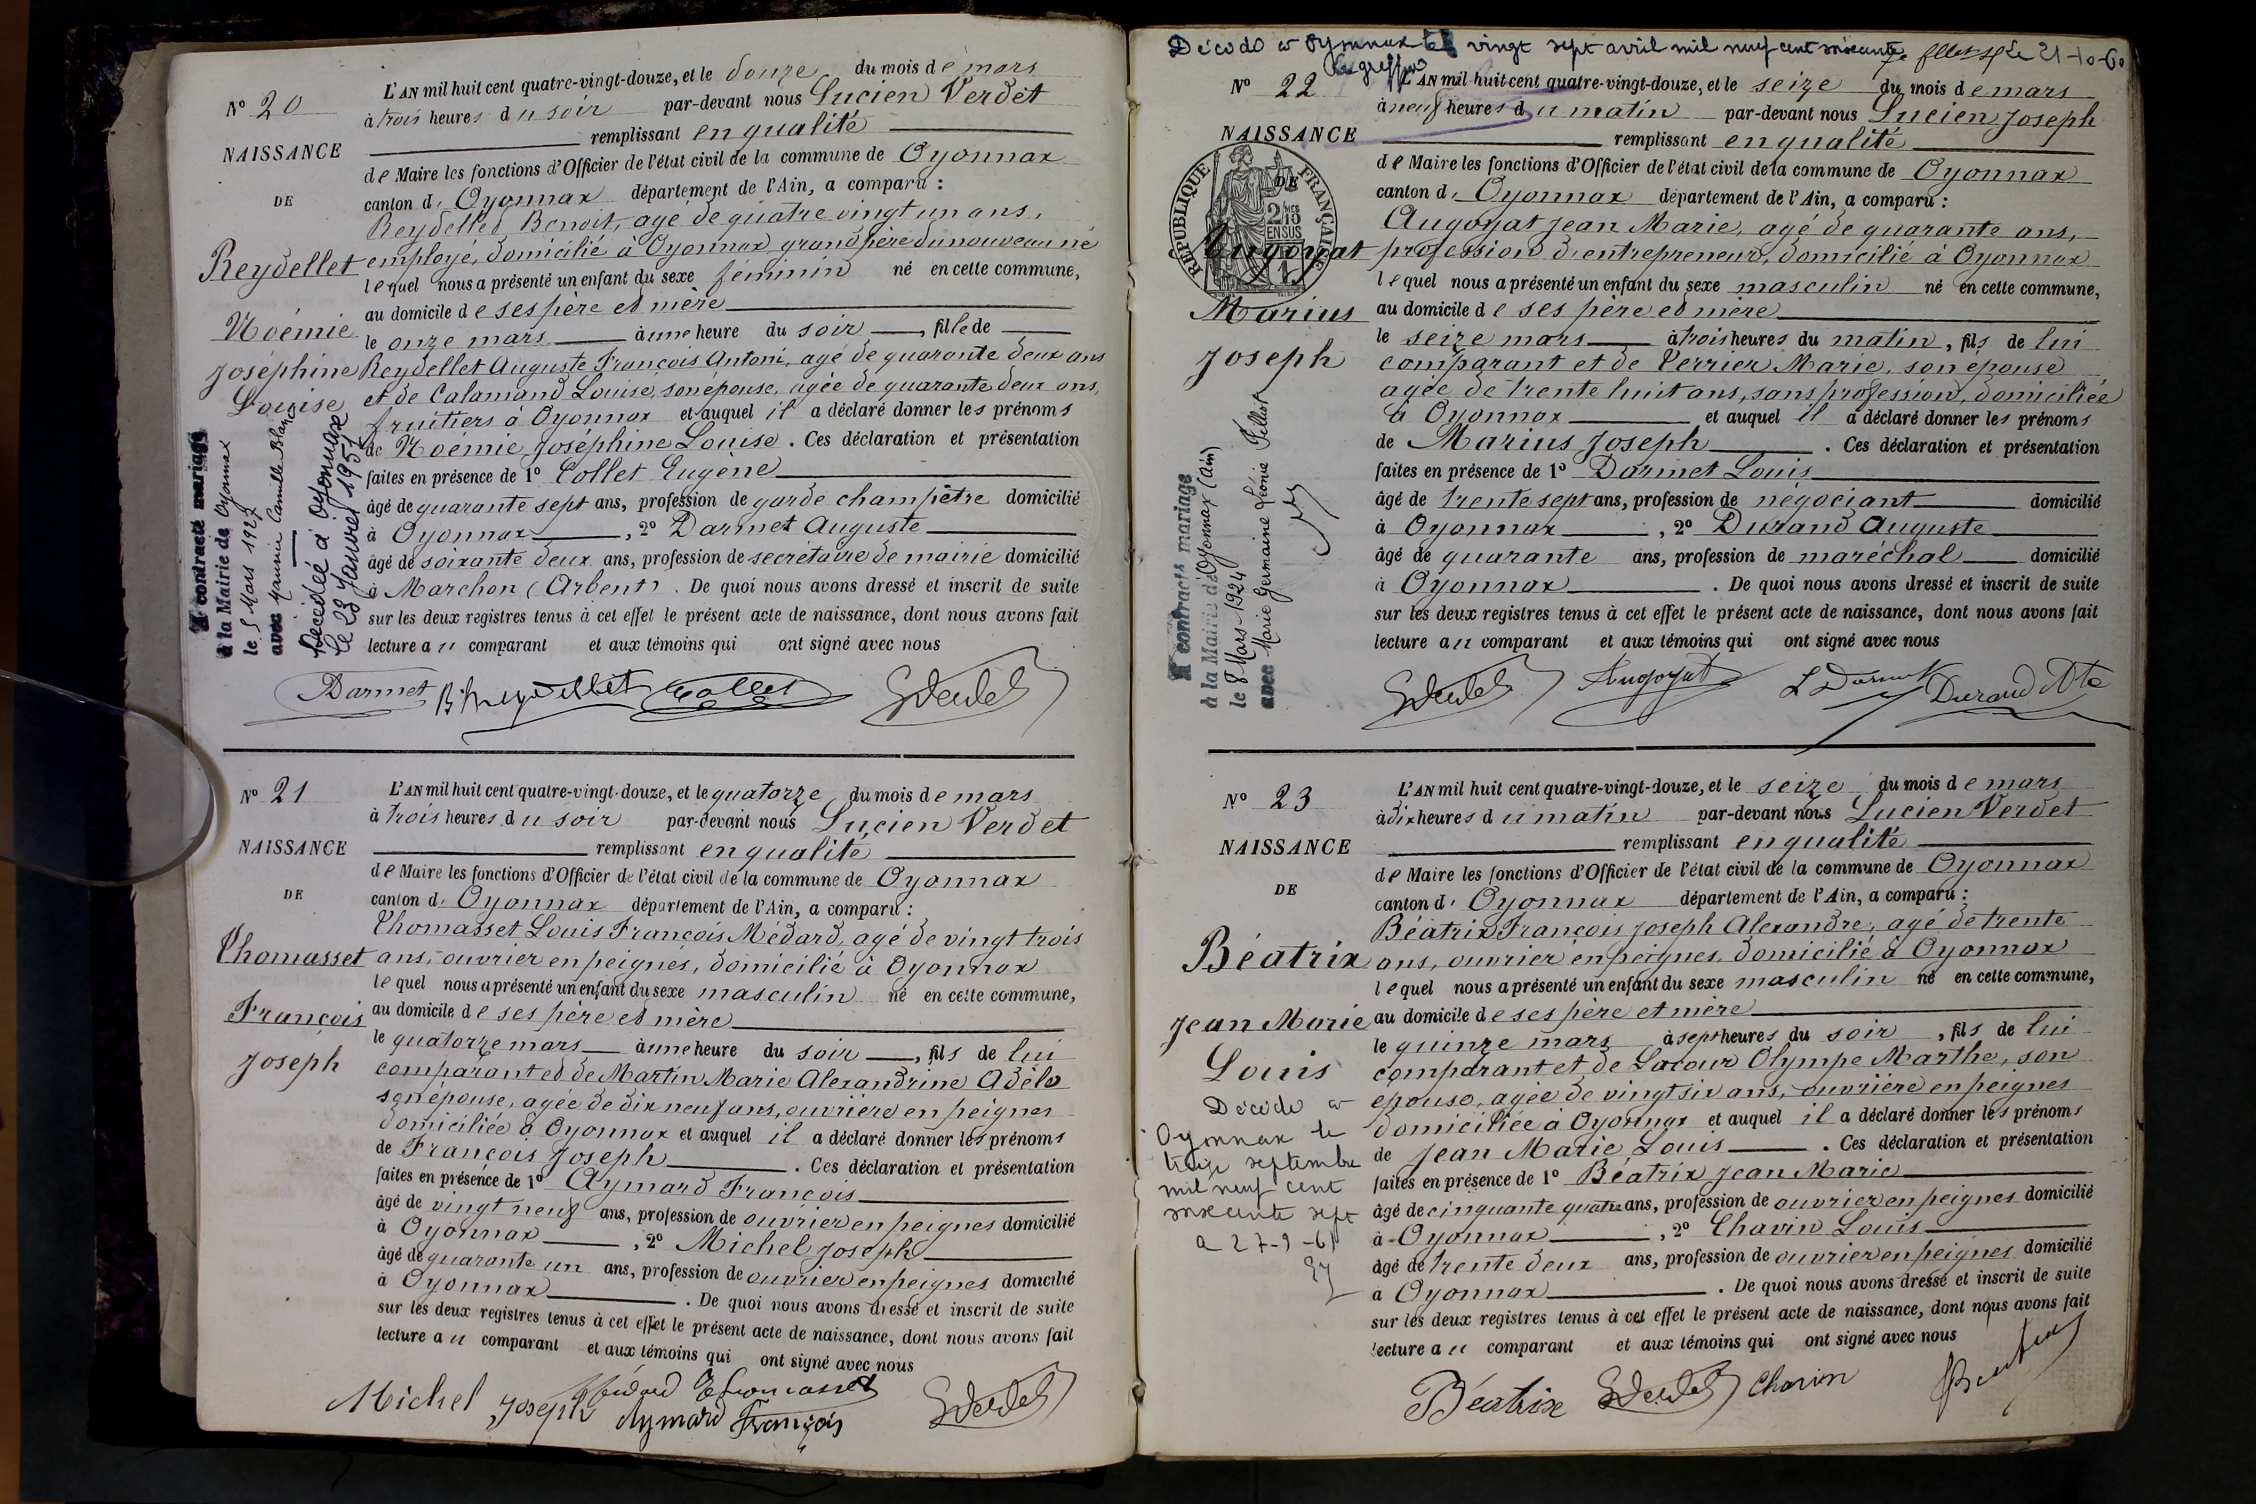 Nº 20
NAISSANCE
DE
Reydellet
Noémie
Joséphine
Louise
A contracté mariage
à la Mairie de Oyonnax
le 5 Mars 1927
avec
Camille
Décédée à Oyonnax
le 23 Janvier 1957
L'AN mil huit cent quatre-vingt-douze, et le douze du mois de mars
à trois heures du soir par-devant nous Lucien Verdet
remplissant en qualité
de Maire les fonctions d'Officier de l'état civil de la commune de Oyonnax
canton d' Oyonnax département de l'Ain, a comparu :
Reydellet Benoit, agé de quatre vingt un ans,
employé, domicilié à Oyonnax grand père du nouveau né
lequel nous a présenté un enfant du sexe féminin né en cette commune,
au domicile de ses père et mère
le onze mars à une heure du soir, fille de
Reydellet Auguste François Antoni, agé de quarante deux ans
et de Calamand Louise, son épouse, agée de quarante deux ans,
fruitiers à Oyonnax et auquel il a déclaré donner les prénoms
de Noémie Joséphine Louise. Ces déclaration et présentation
faites en présence de 1º Collet Eugène
âgé de quarante sept ans, profession de garde champêtre domicilié
à Oyonnax, 2º Darmet Auguste
âgé de soixante deux ans, profession de secrétaire de mairie domicilié
à Marchon (Arbent). De quoi nous avons dressé et inscrit de suite
sur les deux registres tenus à cet effet le présent acte de naissance, dont nous avons fait
lecture au comparant et aux témoins qui ont signé avec nous
Darmet B. Reydellet Collet
Nº 21
NAISSANCE
DE
Thomasset
François
Joseph
L'AN mil huit cent quatre-vingt-douze, et le quatorze du mois de mars
à trois heures du soir par-devant nous Lucien Verdet
remplissant en qualité
de Maire les fonctions d'Officier de l'état civil de la commune de Oyonnax
canton d' Oyonnax département de l'Ain, a comparu :
Thomasset Louis François Médard, agé de vingt trois
ans, ouvrier en peignes, domicilié à Oyonnax
lequel nous a présenté un enfant du sexe masculin né en cette commune,
au domicile de ses père et mère
le quatorze mars à une heure du soir, fils de lui
comparant et de Martin Marie Alexandrine Adèle
son épouse, agée de dix neuf ans, ouvrière en peignes
domiciliée à Oyonnax et auquel il a déclaré donner les prénoms
de François Joseph. Ces déclaration et présentation
faites en présence de 1º Aymard François
âgé de vingt neuf ans, profession de ouvrier en peignes domicilié
à Oyonnax, 2º Michel Joseph
âgé de quarante un ans, profession de ouvrier en peignes domicilié
à Oyonnax. De quoi nous avons dressé et inscrit de suite
sur les deux registres tenus à cet effet le présent acte de naissance, dont nous avons fait
lecture au comparant et aux témoins qui ont signé avec nous
Michel Joseph Médard Thomasset
Aymard François
Décédé à Oyonnax le vingt sept avril mil neuf cent soixante Le 21-10-60
Le greffier
Nº 22
NAISSANCE
DE
RÉPUBLIQUE FRANÇAISE
Augoyat
Marius
Joseph
A contracté mariage
à la Mairie de Oyonnax (Ain)
le 8 Mars 1924
avec Marie Germaine Léonie Fillot
L'AN mil huit cent quatre-vingt-douze, et le seize du mois de mars
à neuf heures du matin par-devant nous Lucien Joseph
remplissant en qualité
de Maire les fonctions d'Officier de l'état civil de la commune de Oyonnax
canton d' Oyonnax département de l'Ain, a comparu :
Augoyat Jean Marie, agé de quarante ans,
profession d'entrepreneur, domicilié à Oyonnax
lequel nous a présenté un enfant du sexe masculin né en cette commune,
au domicile de ses père et mère
le seize mars à trois heures du matin, fils de lui
comparant et de Verrier Marie, son épouse
agée de trente huit ans, sans profession, domiciliée
à Oyonnax et auquel il a déclaré donner les prénoms
de Marius Joseph. Ces déclaration et présentation
faites en présence de 1º Darmet Louis
âgé de trente sept ans, profession de négociant domicilié
à Oyonnax, 2º Durand Auguste
âgé de quarante ans, profession de maréchal domicilié
à Oyonnax. De quoi nous avons dressé et inscrit de suite
sur les deux registres tenus à cet effet le présent acte de naissance, dont nous avons fait
lecture au comparant et aux témoins qui ont signé avec nous
Augoyat L Darmet Durand Ate
Nº 23
NAISSANCE
DE
Béatrix
Jean Marie
Louis
Décédé à
Oyonnax le
treize septembre
mil neuf cent
soixante sept
27-9-67
L'AN mil huit cent quatre-vingt-douze, et le seize du mois de mars
à dix heures du matin par-devant nous Lucien Verdet
remplissant en qualité
de Maire les fonctions d'Officier de l'état civil de la commune de Oyonnax
canton d' Oyonnax département de l'Ain, a comparu :
Béatrix François Joseph Alexandre, agé de trente
ans, ouvrier en peignes, domicilié à Oyonnax
lequel nous a présenté un enfant du sexe masculin né en cette commune,
au domicile de ses père et mère
le quinze mars à sept heures du soir, fils de lui
comparant et de Lacour Olympe Marthe, son
épouse, agée de vingt six ans, ouvrière en peignes
domiciliée à Oyonnax et auquel il a déclaré donner les prénoms
de Jean Marie Louis. Ces déclaration et présentation
faites en présence de 1º Béatrix Jean Marie
âgé de cinquante quatre ans, profession de ouvrier en peignes domicilié
à Oyonnax, 2º Chavin Louis
âgé de trente deux ans, profession de ouvrier en peignes domicilié
à Oyonnax. De quoi nous avons dressé et inscrit de suite
sur les deux registres tenus à cet effet le présent acte de naissance, dont nous avons fait
lecture au comparant et aux témoins qui ont signé avec nous
Béatrix Chavin